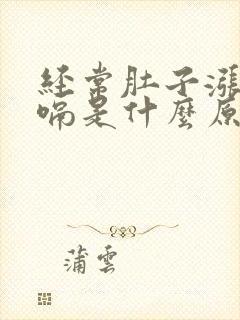 经常肚子涨
嗝是什麼原
蒲雲